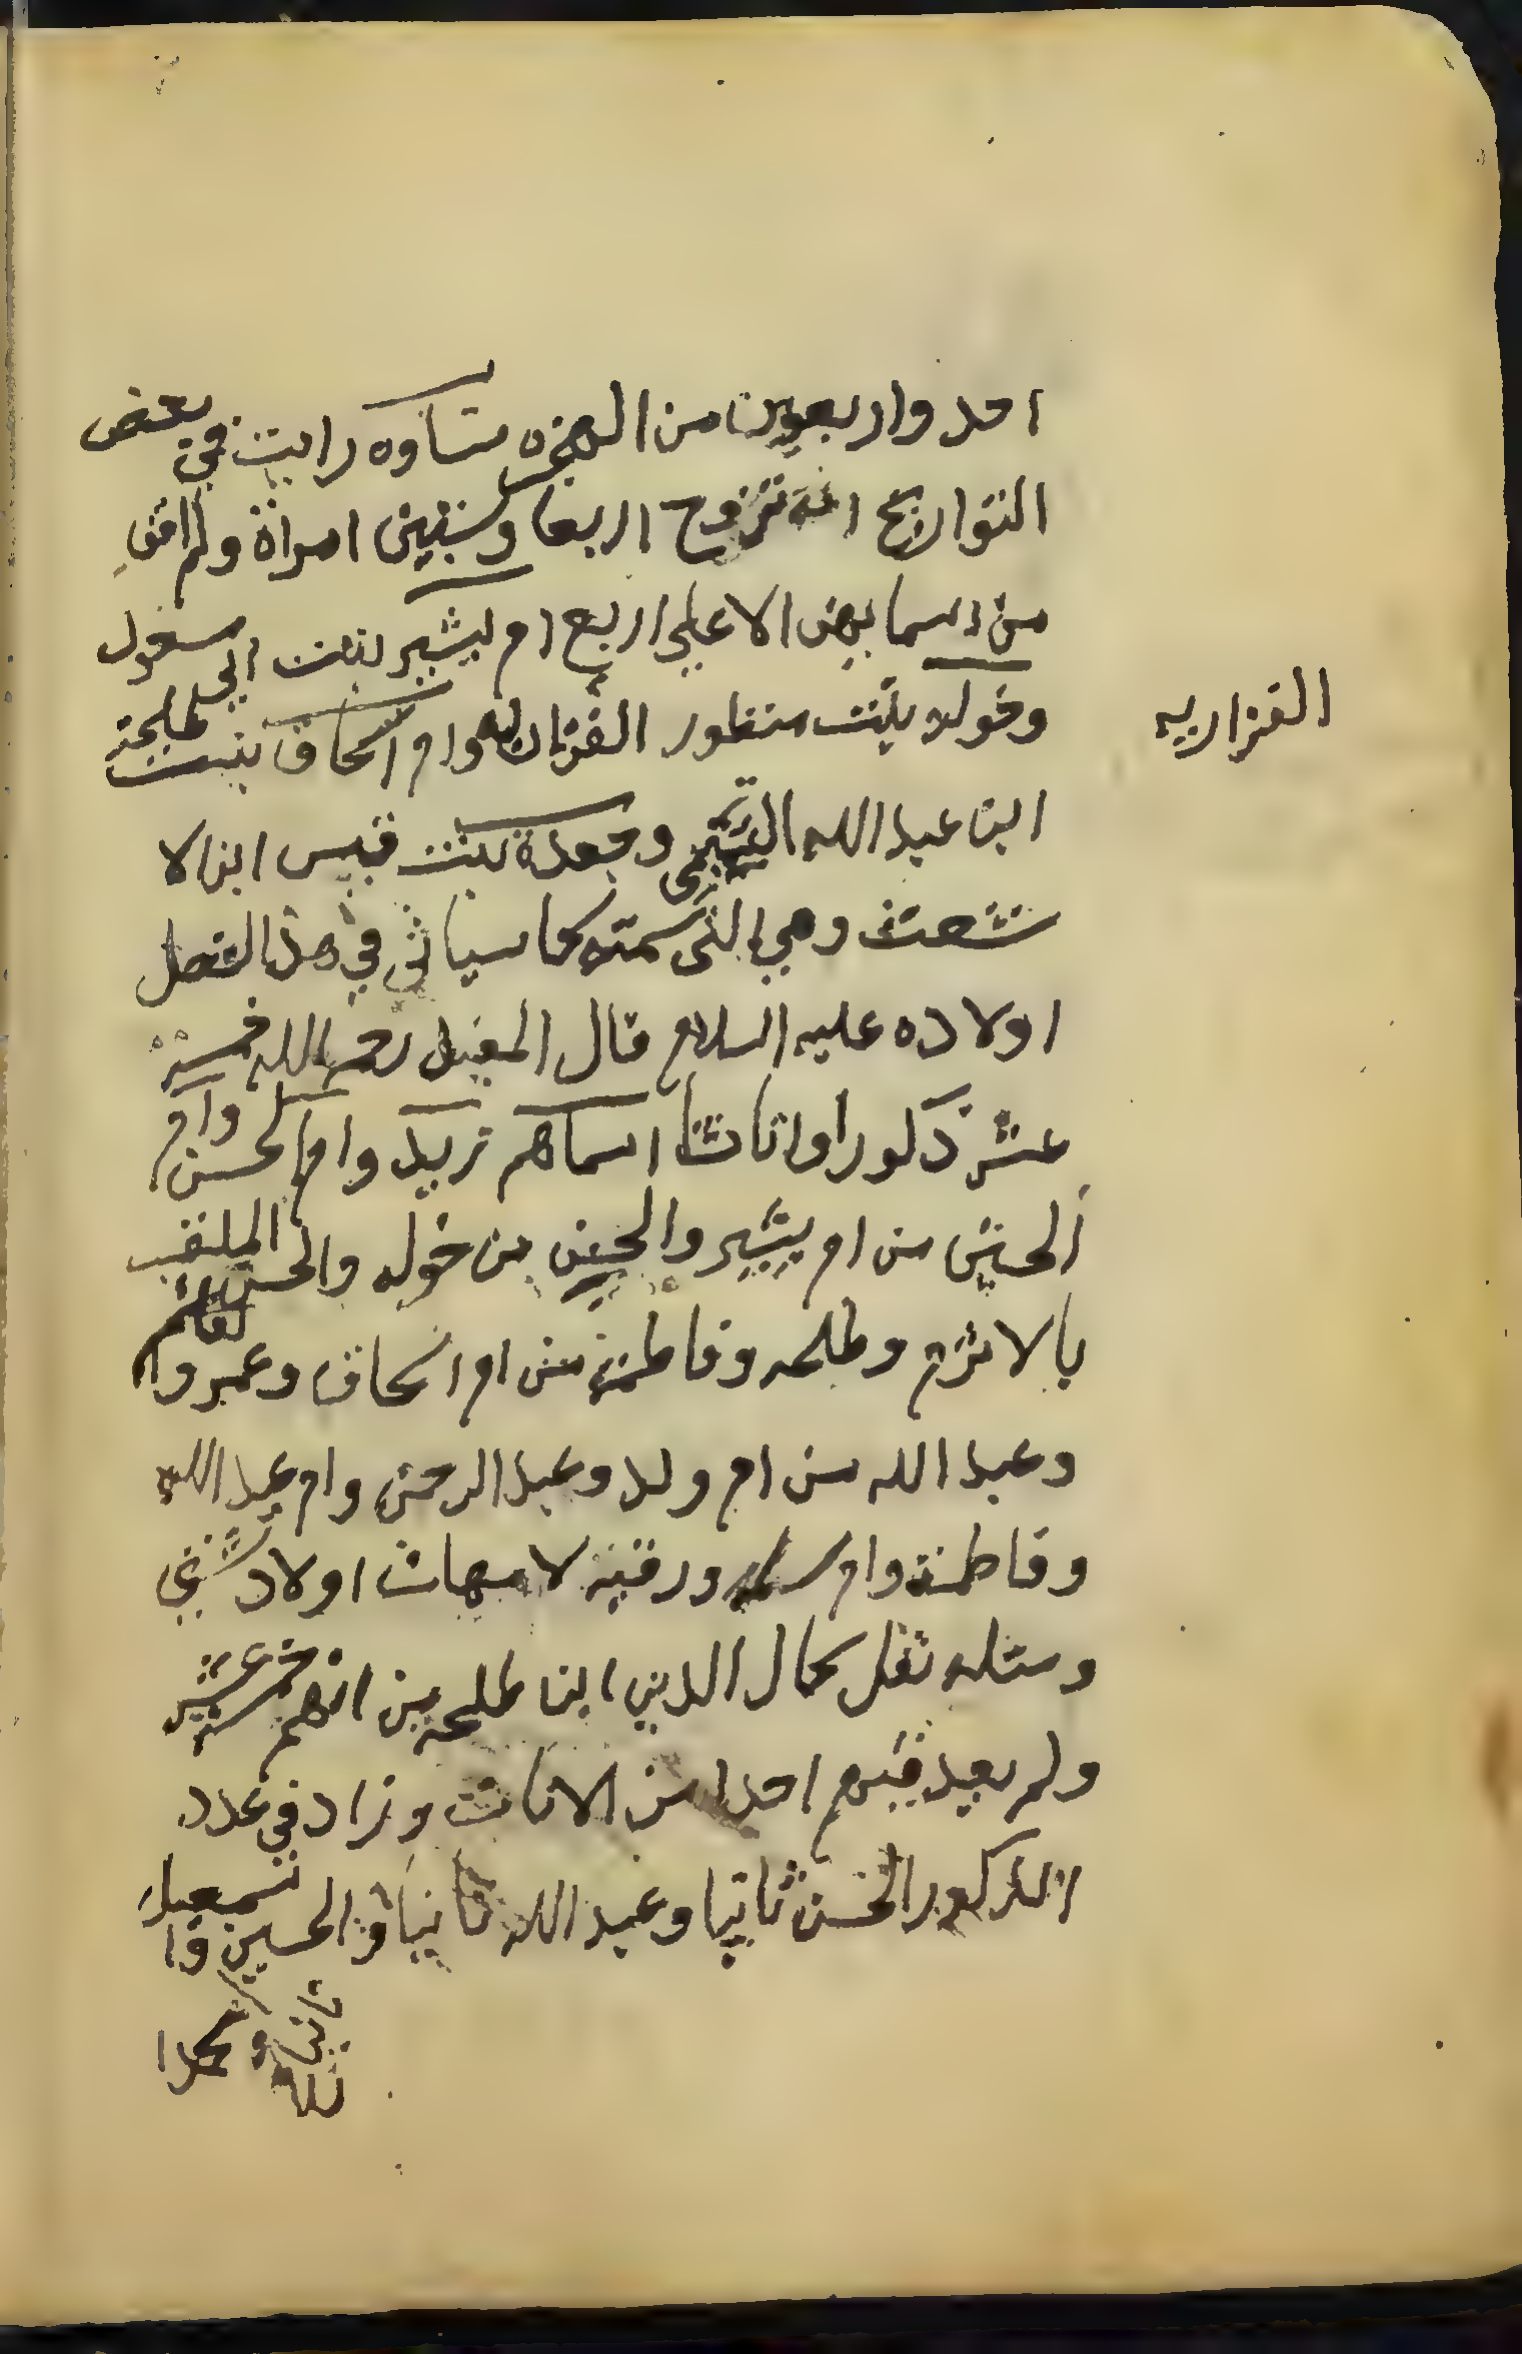 احد واربعين من الهجره نساوه رايت في بعض
التواريخ انه تزوج اربعا وستين امراة ولم اقف
من اسمايهن الا علي اربع ام بشير بنت ابي مسعود
وخوله بنت منظور وام اسحاق بنت طلحة
الفزاريه
ابن عبد الله التيمي وجعدة بنت قيس ابن الا
شعث وهي التي سمته كما سياتي في هذا الفصل
اولاده عليه السلام قال المفيد رحمه الله خمسة
عشر ذكورا واناثا اسماهم زيد وام الحسن وام
الحسين من ام بشير والحسن من خوله والحسين الملقب
بالاثرم وطلحه وفاطمة من ام اسحاق وعمرو والقاسم
وعبد الله من ام ولد وعبد الرحمن وام عبد الله
وفاطمة وام سلمه ورقية لامهات اولاد شتي
ومثله نقل كمال الدين ابن طلحه من انهم خمسة عشر
ولم يعد فيهم احدا من الاناث وزاد في عدد
الذكور الحسن ثانيا وعبد الله ثانيا والحسين وا
سمعيل
ومحدا